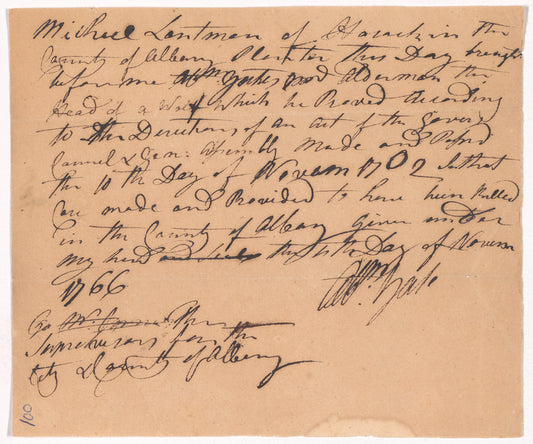 Michael Lantman of Hosack in the
County of Albany Planter this Day brought
before me Abm Yates Esqr Alderman the
Head of a Wolf which he Proved According
to the Directions of an act of the Gover
Council & Gen: Assembly Made and Passd
the 10th Day of Novem 1702 In that
Case made and Provided to have been Killed
in the County of Albany Given under
my hand and seal this 4th Day of Novem
1766
Abm Yates
To the
Supervisors for the
City & County of Albany
100